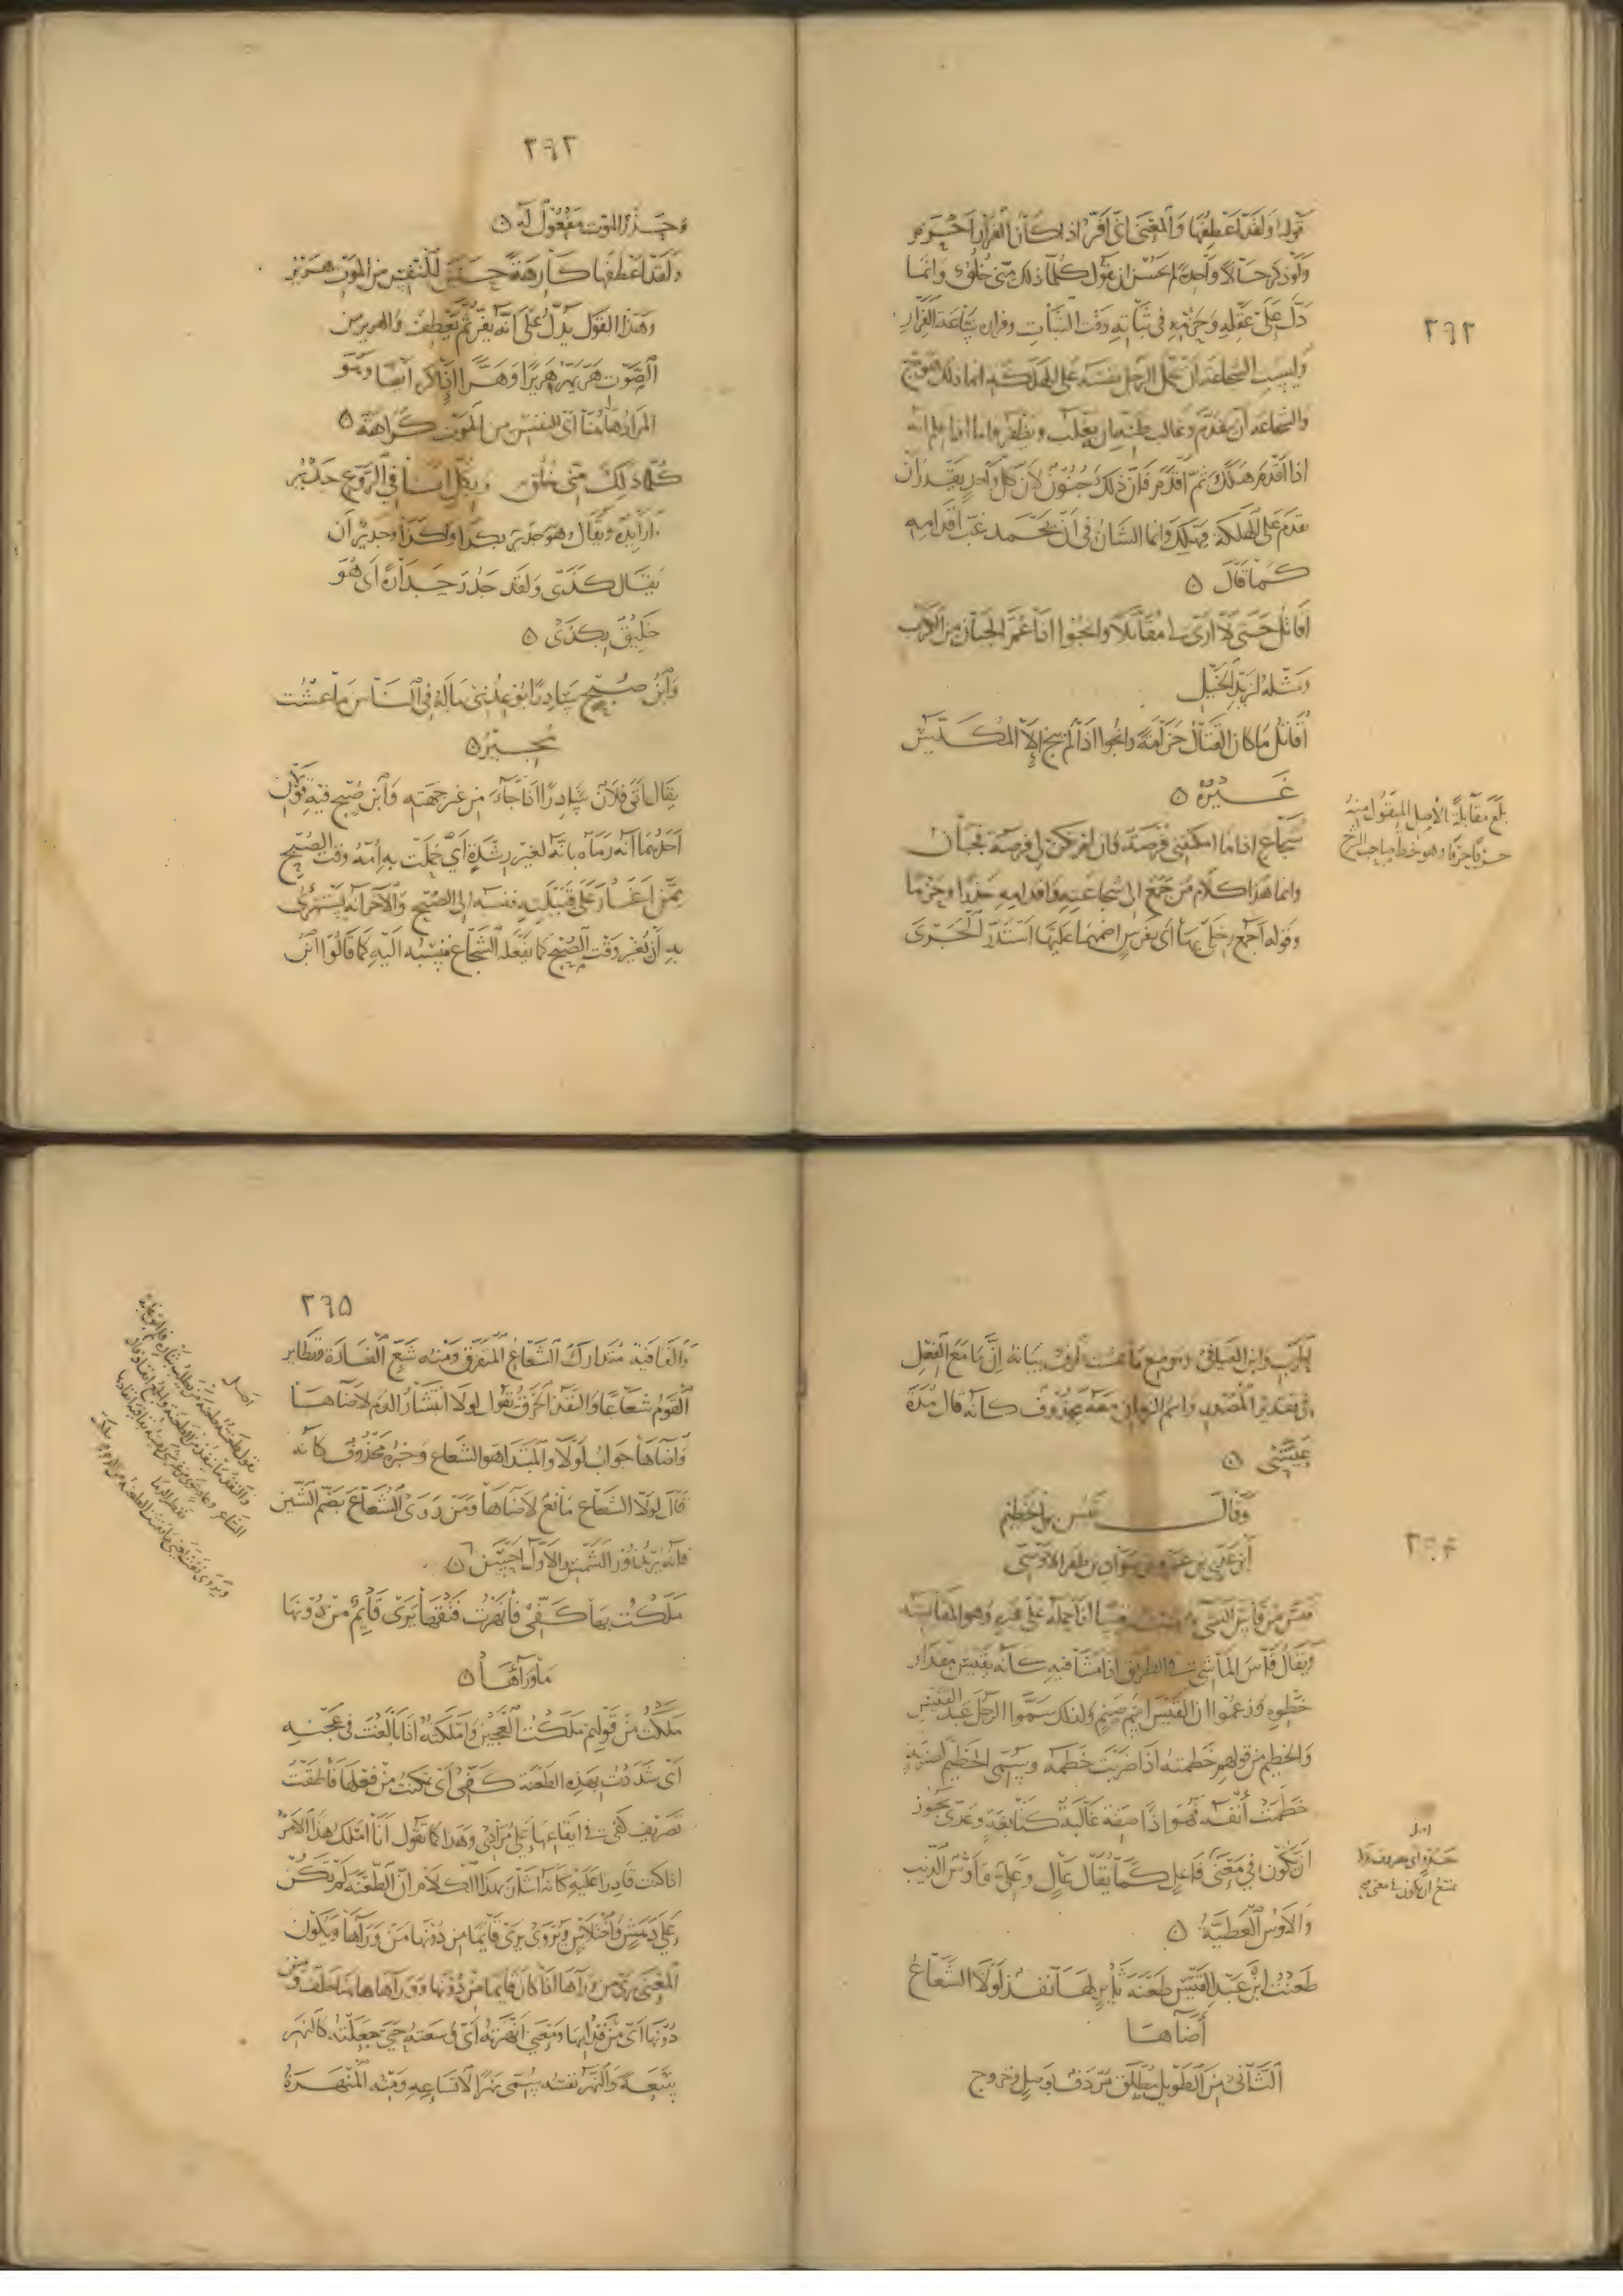 ٢٦٢
قوله ولقد اعطفها والمعنى اني افرّ اذا كان الفرار احزم
ولو ذكر حالا واحدة لم يحسن ان يقول كلّ ما ذلك منّي خلق وانما
دلّ على عقله وحزمه في ثباته وقت الثبات وفراره ساعة الفرار
وليست الشجاعة ان يحمل الرجل نفسه على الهلكة انما ذلك هوج
والشجاعة ان يقدم وغالب ظنه ان يغلب ويظفر واما اذا علم انه
اذا اقدم هلك ثم اقدم فان ذلك جنون لان كل واحد يقدر ان
يقدم على الهلكة فيهلك وانما الشان في ان يحمد غبّ اقدامه
كما قال ٥
اقاتل حتى لا ارى لي مقاتلا وانجوا اذا غمّ الجبان من الكرب
ومثله لزيد الخيل
اقاتل ما كان القتال حزامة وانجوا اذا لم ينج الا المكيّس
غيره ٥
شجاع اذا ما امكنتني فرصة فان لم تكن لي فرصة فجبان
وانما هذا كلام من جمع الى شجاعته واقدامه حذرا وحزما
وقوله اجمع رجلي بها أي بفرس اضمهما عليها استدر الجرى
بلغ مقابلة بالاصل المنقول منه
حرفا حرفا وهو خط صاحب الشرح
٢٦٣
وحذر الموت مفعول له ٥
ولقد اعطفها كارهة حين للنفس من الموت هرير
وهذا القول يدل على انه يفر ثم يعطف والهرير من
الصوت هرّ يهرّ هريرا وهرّا اذا كره ايضا وهو
المراد هاهنا اي للنفس من الموت كراهة ٥
كلّ ما ذلك منّي خلق وبكل انا في الروع جدير
ويقال وهو جدير بكذا ولكذا وجدير ان
يفعل كذى ولقد جدر جدارة اي هو
خليق بكذى ٥
وابن صبح سادرا يوعدني ماله في الناس ما عشت
مجير ٥
يقال اتى فلان سادرا اذا جاء من غير جهته وابن صبح فيه قولان
احدهما انه رماه بانه لغير رشدة اي حملت به امّه وقت الصبح
ممن اغار على قبيلته فنسبه الى الصبح والاخر انه يستهزئ
به ان يغير وقت الصبح كما يفعله الشجاع فنسبه اليه كما قالوا ابن
الحرب وابن الفيافي وموضع ما عشت ظرف بيانه ان ما مع الفعل
في تقدير المصدر واسم الزمان معه محذوف كانه قال مدة
عيشي ٥
وقال قيس بن الخطيم
ابن عدي بن عمرو بن سواد بن ظفر الاوسي
قيس من قاس الشي يقيسه قيسا اذا حمله على غيره وهو المقايسة
ويقال قاس الماشي في الطريق اذا مشا فيه كانه يقيس مقدار
خطوه وزعموا ان القيس اسم صنم ولذلك سموا الرجل عبد القيس
والخطيم من قولهم خطمته اذا ضربت خطمه وسمى الخطيم لضربة
خطمت انفه فهو اذا صفة غالبة كنابغة وعدي يجوز
ان يكون في معنى فاعل كما يقال عال وعلي واوس الذيب
والاوس العطية ٥
طعنت ابن عبد القيس طعنة ثاير لها نفذ لولا الشعاع
أضاها
الثاني من الطويل مطلق مردف بوصل وخروج
٢٦٥
والقافية متدارك الشعاع المتفرق ومنه شعّ الغارة وتطاير
القوم شعاعا والنفذ الخرق تقول لولا انتشار الدم لاضاها
واضاها جواب لولا والمبتدا هو الشعاع وخبره محذوف كانه
قال لولا الشعاع مانع لاضاها ومن روى الشعاع بضم الشين
فانه يريد نور الشمس والاوّل احسن ٥
ملكت بها كفّي فأنهرت فتقها يرى قايم من دونها
ما ورآءها ٥
ملكت من قولهم ملكت العجين واملكته اذا بالغت في عجنه
اي شددت بهذه الطعنة كفّي اي تمكنت من فعلها فاطلقت
تصريف كفي في ايقاعها على مرادي وهذا كما تقول انا املك هذا الامر
اذا كنت قادرا عليه كانه اشار بهذا الكلام ان الطعنة لم تكن
على دهش واختلاس ويروى يرى قايما من دونها من ورآها ويكون
المعنى يرى من ورآها اذا كان قايما من دونها وورآها هاهنا خلف ومن
دونها اي من قدامها ومعنى انهرته اي وسعته حتى جعلته كالنهر
سعة والنهر نفسه يسمى نهرا لاتساعه ومنه المنهرة